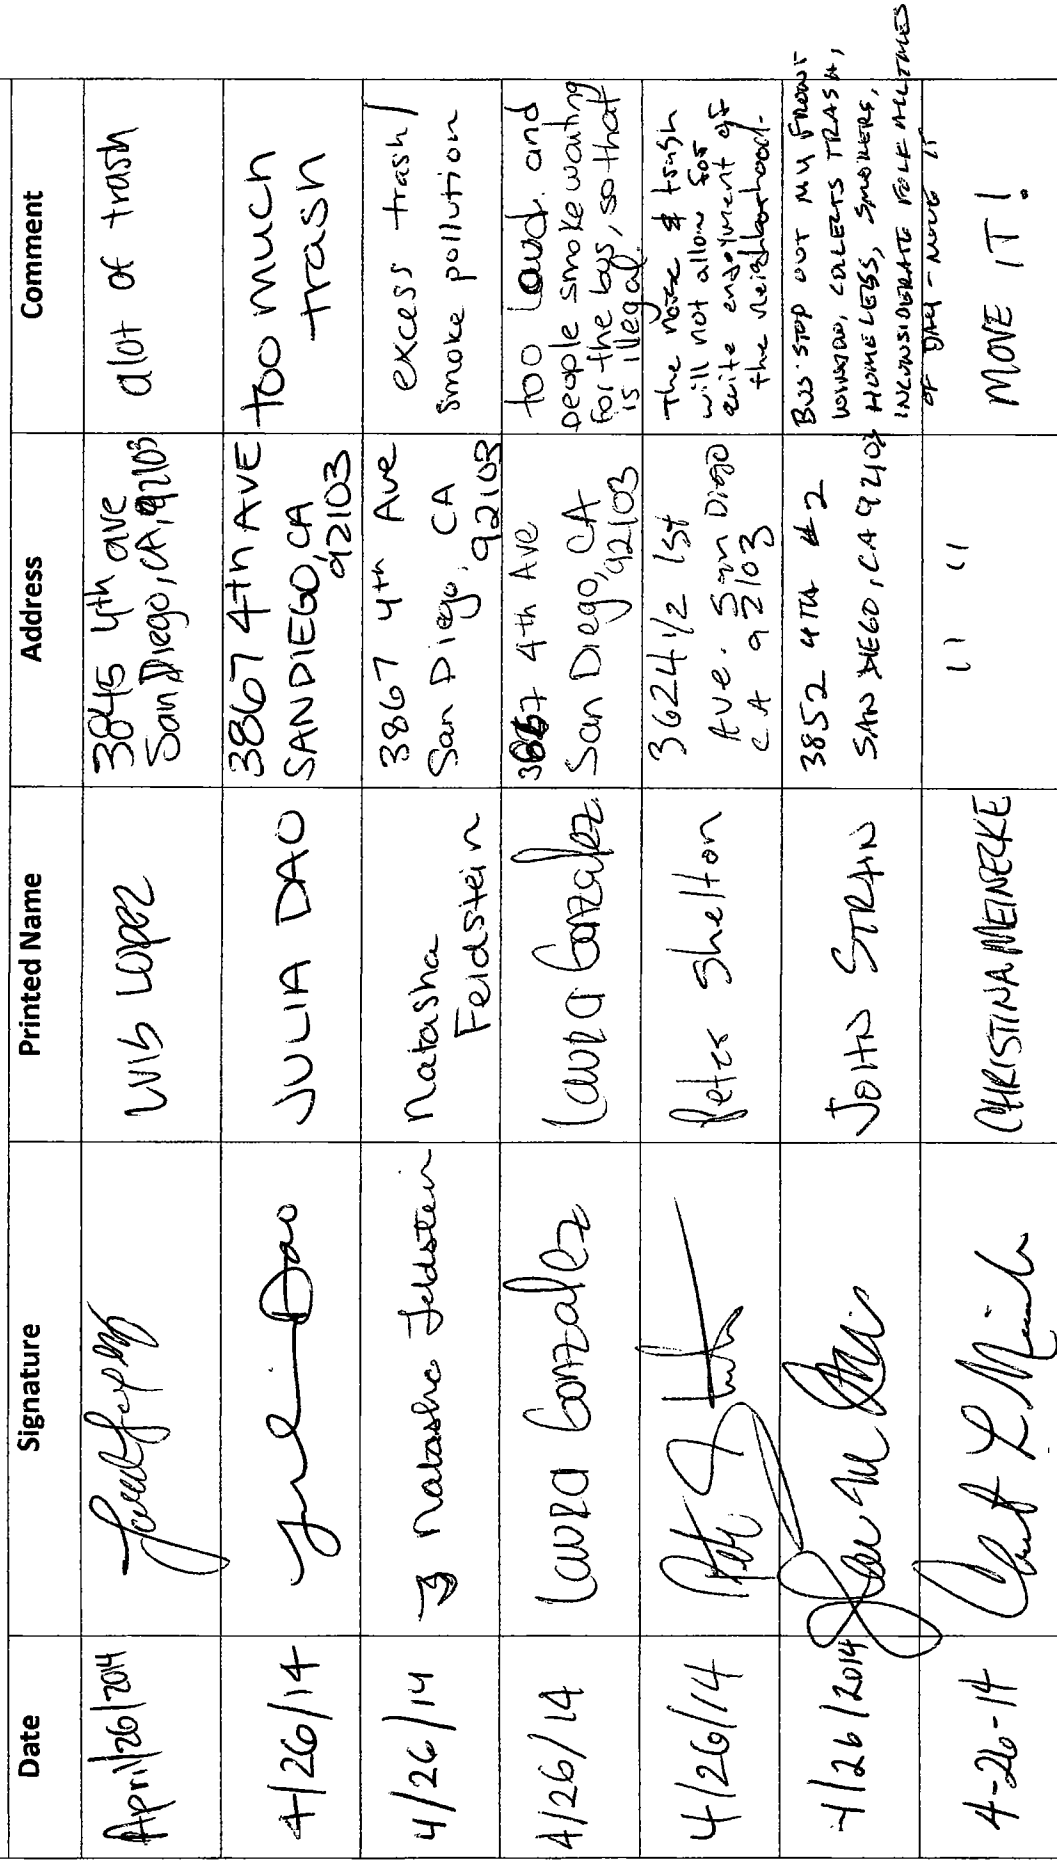 Date Signature Printed Name Address Comment
April/26/2014 Luis Lopez 3845 4th ave
San Diego, CA, 92103
alot of trash
4/26/14 Julia Dao JULIA DAO 3867 4th AVE
SAN DIEGO, CA
92103
too much
trash
4/26/14 Natasha Feldstein Natasha
Feldstein
3867 4th Ave
San Diego, CA
92103
excess trash/
smoke pollution
4/26/14 Laura Gonzalez Laura Gonzalez 3867 4th Ave
San Diego, CA
92103
too loud and
people smoke waiting
for the bus, so that
is illegal.
4/26/14 Peter Shelton 3624 1/2 1st
Ave. San Diego
CA 92103
The noise & trash
will not allow for
quite enjoyment of
the neighborhood.
4/26/2014 JOHN STRAIN 3852 4TH #2
SAN DIEGO, CA 92103
BUS STOP OUT MY FRONT
WINDOW, COLLECTS TRASH,
HOMELESS, SMOKERS,
INCONSIDERATE FOLK ALL TIMES
OF DAY - MOVE IT
4-26-14 CHRISTINA MEINECKE " " MOVE IT!